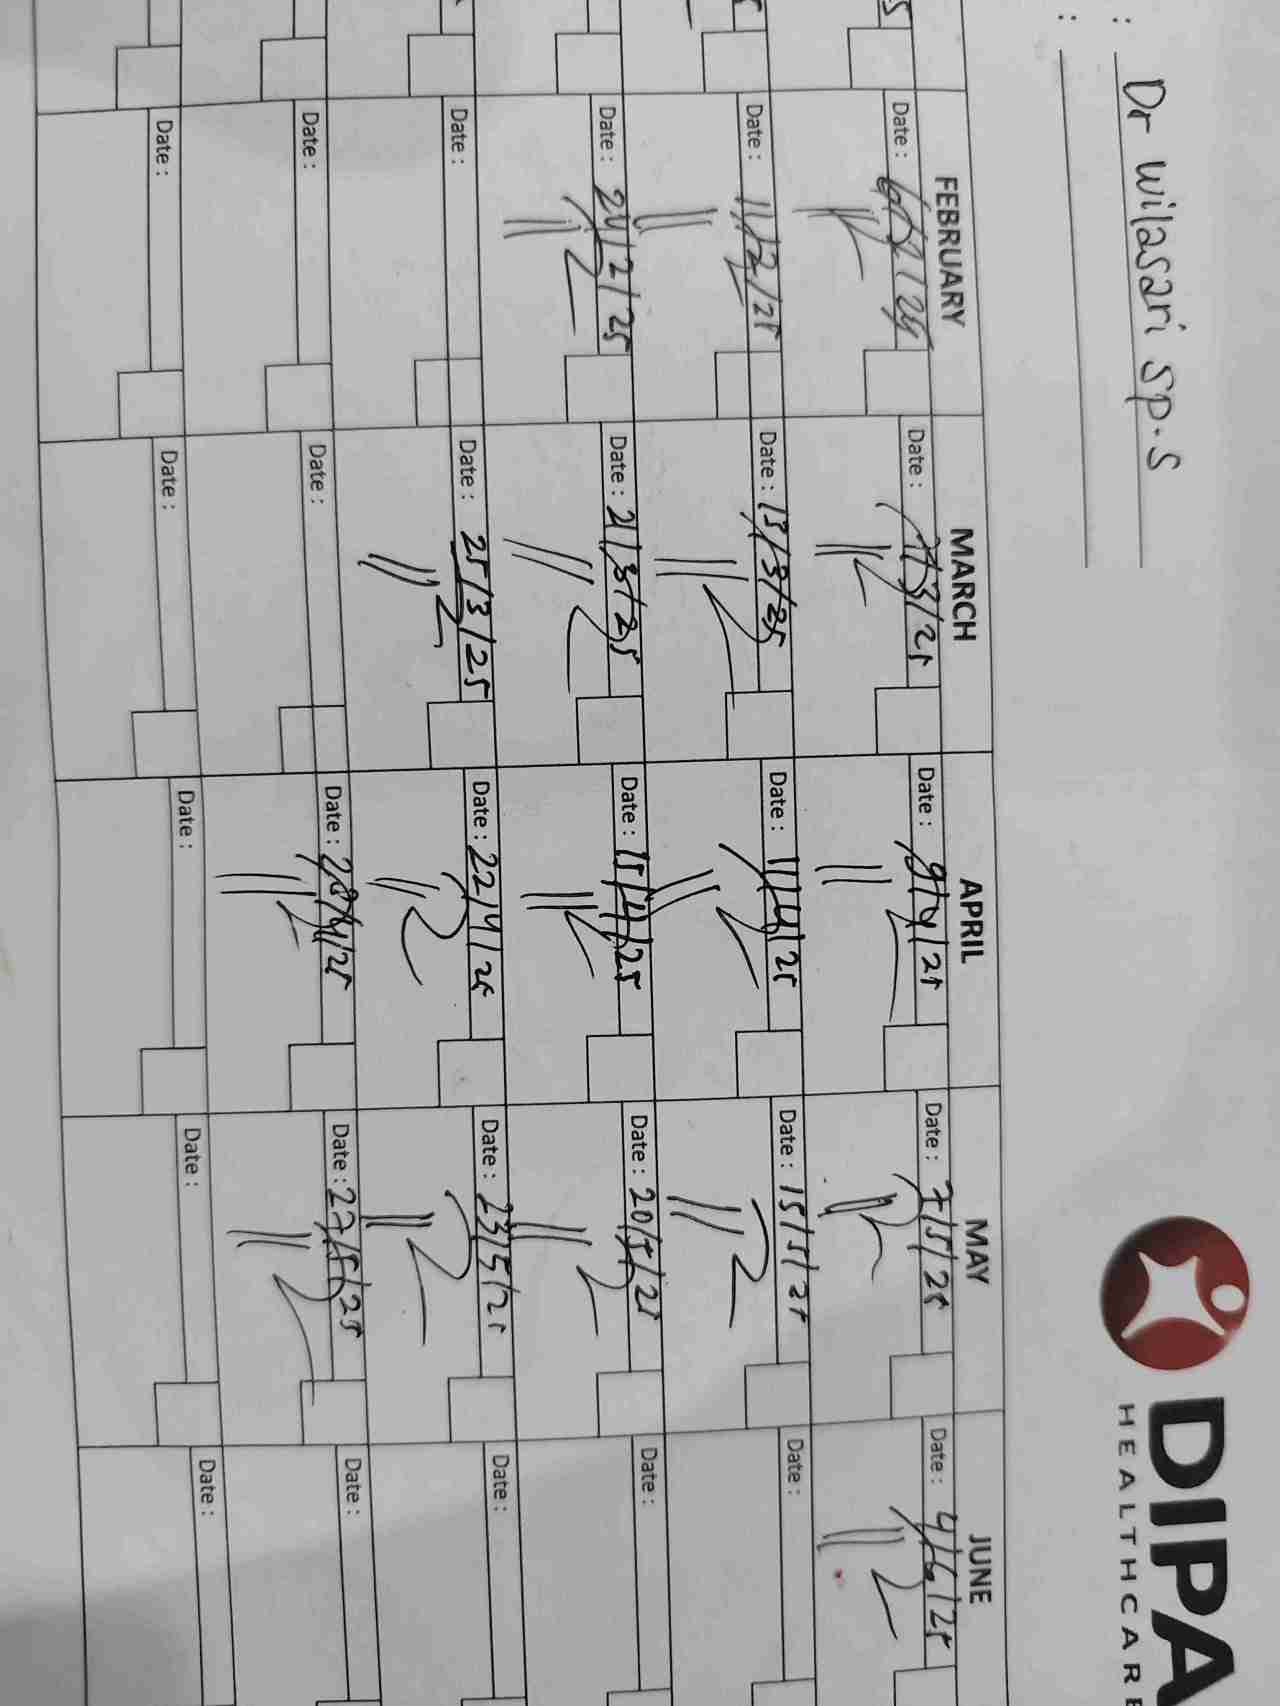 : Dr wilasari sp.S
:
DIPA
HEALTHCARE
FEBRUARY MARCH APRIL MAY JUNE
Date : 6/2/25 Date : 7/3/25 Date : 9/4/25 Date : 7/5/25 Date : 4/6/25
Date : 11/2/25 Date : 13/3/25 Date : 11/4/25 Date : 15/5/25 Date :
Date : 24/2/25 Date : 21/3/25 Date : 15/4/25 Date : 20/5/25 Date :
Date : Date : 25/3/25 Date : 22/4/25 Date : 23/5/25 Date :
Date : Date : Date : 28/4/25 Date : 27/5/25 Date :
Date : Date : Date : Date : Date :